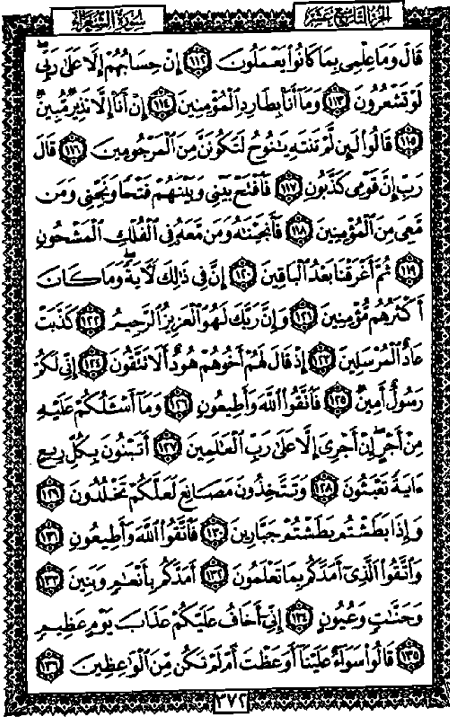 سُورَةُ الشُّعَرَاءِ
الجُزْءُ التَّاسِعَ عَشَرَ
قَالَ وَمَا عِلْمِى بِمَا كَانُوا۟ يَعْمَلُونَ ١١٢ إِنْ حِسَابُهُمْ إِلَّا عَلَىٰ رَبِّى ۖ
لَوْ تَشْعُرُونَ ١١٣ وَمَآ أَنَا۠ بِطَارِدِ الْمُؤْمِنِينَ ١١٤ إِنْ أَنَا۠ إِلَّا نَذِيرٌ مُّبِينٌ
١١٥ قَالُوا۟ لَئِن لَّمْ تَنتَهِ يَٰنُوحُ لَتَكُونَنَّ مِنَ الْمَرْجُومِينَ ١١٦ قَالَ
رَبِّ إِنَّ قَوْمِى كَذَّبُونِ ١١٧ فَافْتَحْ بَيْنِى وَبَيْنَهُمْ فَتْحًا وَنَجِّنِى وَمَن
مَّعِىَ مِنَ الْمُؤْمِنِينَ ١١٨ فَأَنجَيْنَٰهُ وَمَن مَّعَهُۥ فِى الْفُلْكِ الْمَشْحُونِ
١١٩ ثُمَّ أَغْرَقْنَا بَعْدُ الْبَاقِينَ ١٢٠ إِنَّ فِى ذَٰلِكَ لَءَايَةً ۖ وَمَا كَانَ
أَكْثَرُهُم مُّؤْمِنِينَ ١٢١ وَإِنَّ رَبَّكَ لَهُوَ الْعَزِيزُ الرَّحِيمُ ١٢٢ كَذَّبَتْ
عَادٌ الْمُرْسَلِينَ ١٢٣ إِذْ قَالَ لَهُمْ أَخُوهُمْ هُودٌ أَلَا تَتَّقُونَ ١٢٤ إِنِّى لَكُمْ
رَسُولٌ أَمِينٌ ١٢٥ فَاتَّقُوا۟ اللَّهَ وَأَطِيعُونِ ١٢٦ وَمَآ أَسْـَٔلُكُمْ عَلَيْهِ
مِنْ أَجْرٍ ۖ إِنْ أَجْرِىَ إِلَّا عَلَىٰ رَبِّ الْعَٰلَمِينَ ١٢٧ أَتَبْنُونَ بِكُلِّ رِيعٍ
ءَايَةً تَعْبَثُونَ ١٢٨ وَتَتَّخِذُونَ مَصَانِعَ لَعَلَّكُمْ تَخْلُدُونَ ١٢٩
وَإِذَا بَطَشْتُم بَطَشْتُمْ جَبَّارِينَ ١٣٠ فَاتَّقُوا۟ اللَّهَ وَأَطِيعُونِ ١٣١
وَاتَّقُوا۟ الَّذِىٓ أَمَدَّكُم بِمَا تَعْلَمُونَ ١٣٢ أَمَدَّكُم بِأَنْعَٰمٍ وَبَنِينَ ١٣٣
وَجَنَّٰتٍ وَعُيُونٍ ١٣٤ إِنِّىٓ أَخَافُ عَلَيْكُمْ عَذَابَ يَوْمٍ عَظِيمٍ
١٣٥ قَالُوا۟ سَوَآءٌ عَلَيْنَآ أَوَعَظْتَ أَمْ لَمْ تَكُن مِّنَ الْوَٰعِظِينَ ١٣٦
٣٧٢